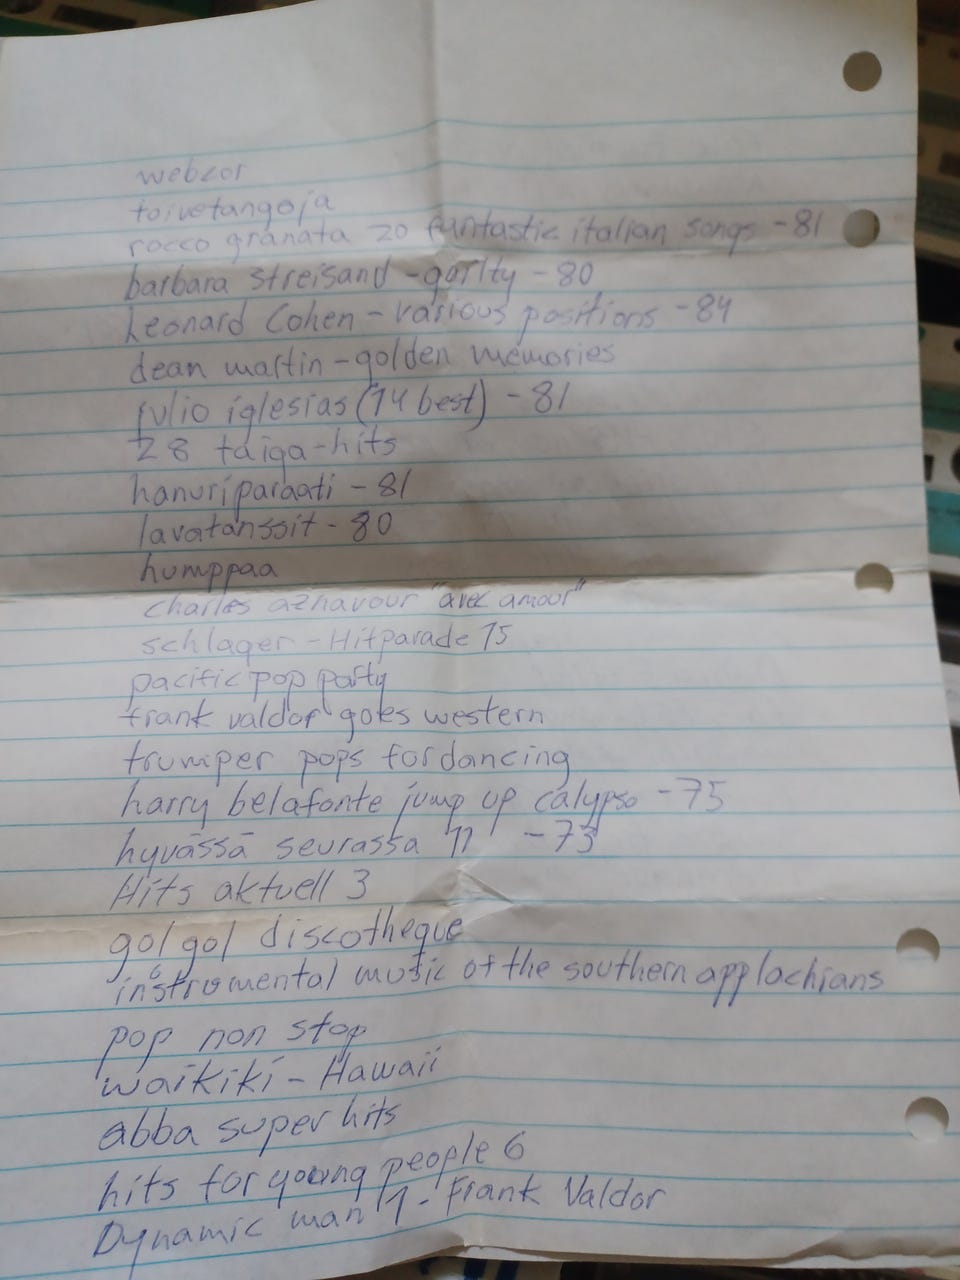 webcor
toivetangoja
rocco granata 20 fantastic italian songs -81
barbara streisand -gorlty -80
Leonard Cohen - various positions -84
dean martin - golden memories
julio iglesias (14 best) - 81
28 taiga-hits
hanuriparaati - 81
lavatanssit - 80
humppaa
charles aznavour "avec amour"
schlager - Hitparade 75
pacific pop party
frank valdor goes western
trumper pops for dancing
harry belafonte jump up calypso - 75
hyvässä seurassa 11 - 73
Hits aktuell 3
go! go! discotheque
instrumental music of the southern applachians
pop non stop
waikiki - Hawaii
abba super hits
hits for young people 6
Dynamic man 1 - Frank Valdor